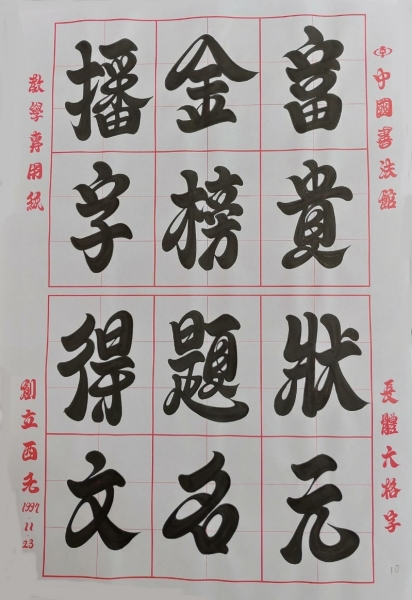 中國書法館
長體六格字
富貴狀元
金榜題名
播字得文
教學專用紙
創立西元1997 11 23
10